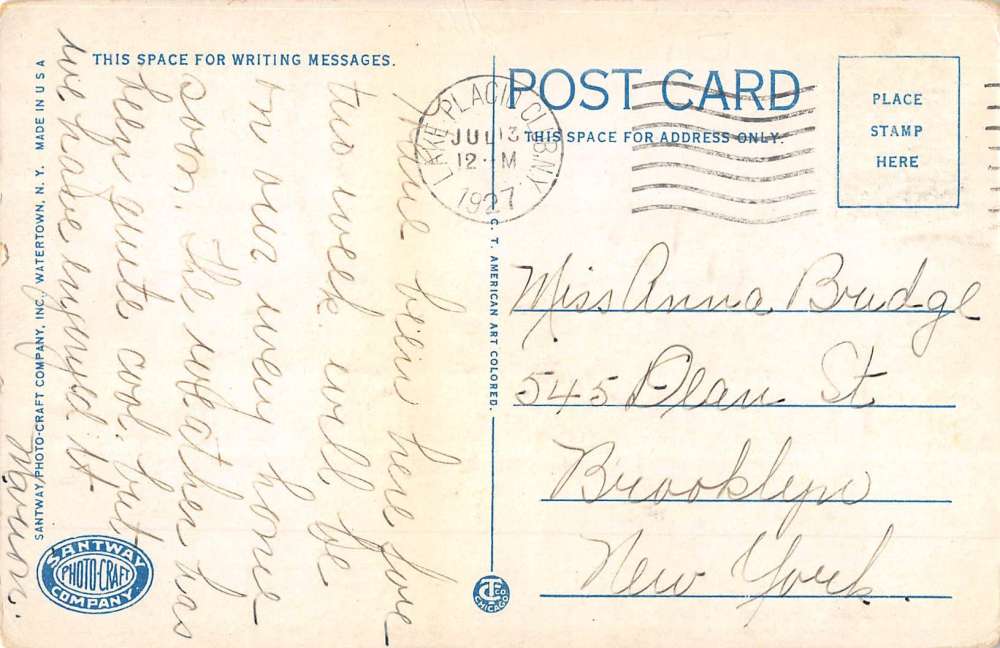 THIS SPACE FOR WRITING MESSAGES.
Have been here for
two week. will be
on our way home
soon. The weather has
been quite cool, but
we have enjoyed it
Marion.
POST CARD
THIS SPACE FOR ADDRESS ONLY.
PLACE
STAMP
HERE
LAKE PLACID CLUB, N.Y.
JUL 13
12 M
1927
Miss Anna Brudge
545 Dean St
Brooklyn
New York.
SANTWAY PHOTO-CRAFT COMPANY, INC., WATERTOWN, N. Y. MADE IN U S A
C. T. AMERICAN ART COLORED.
SANTWAY
PHOTO-CRAFT
COMPANY
CT CO
CHICAGO